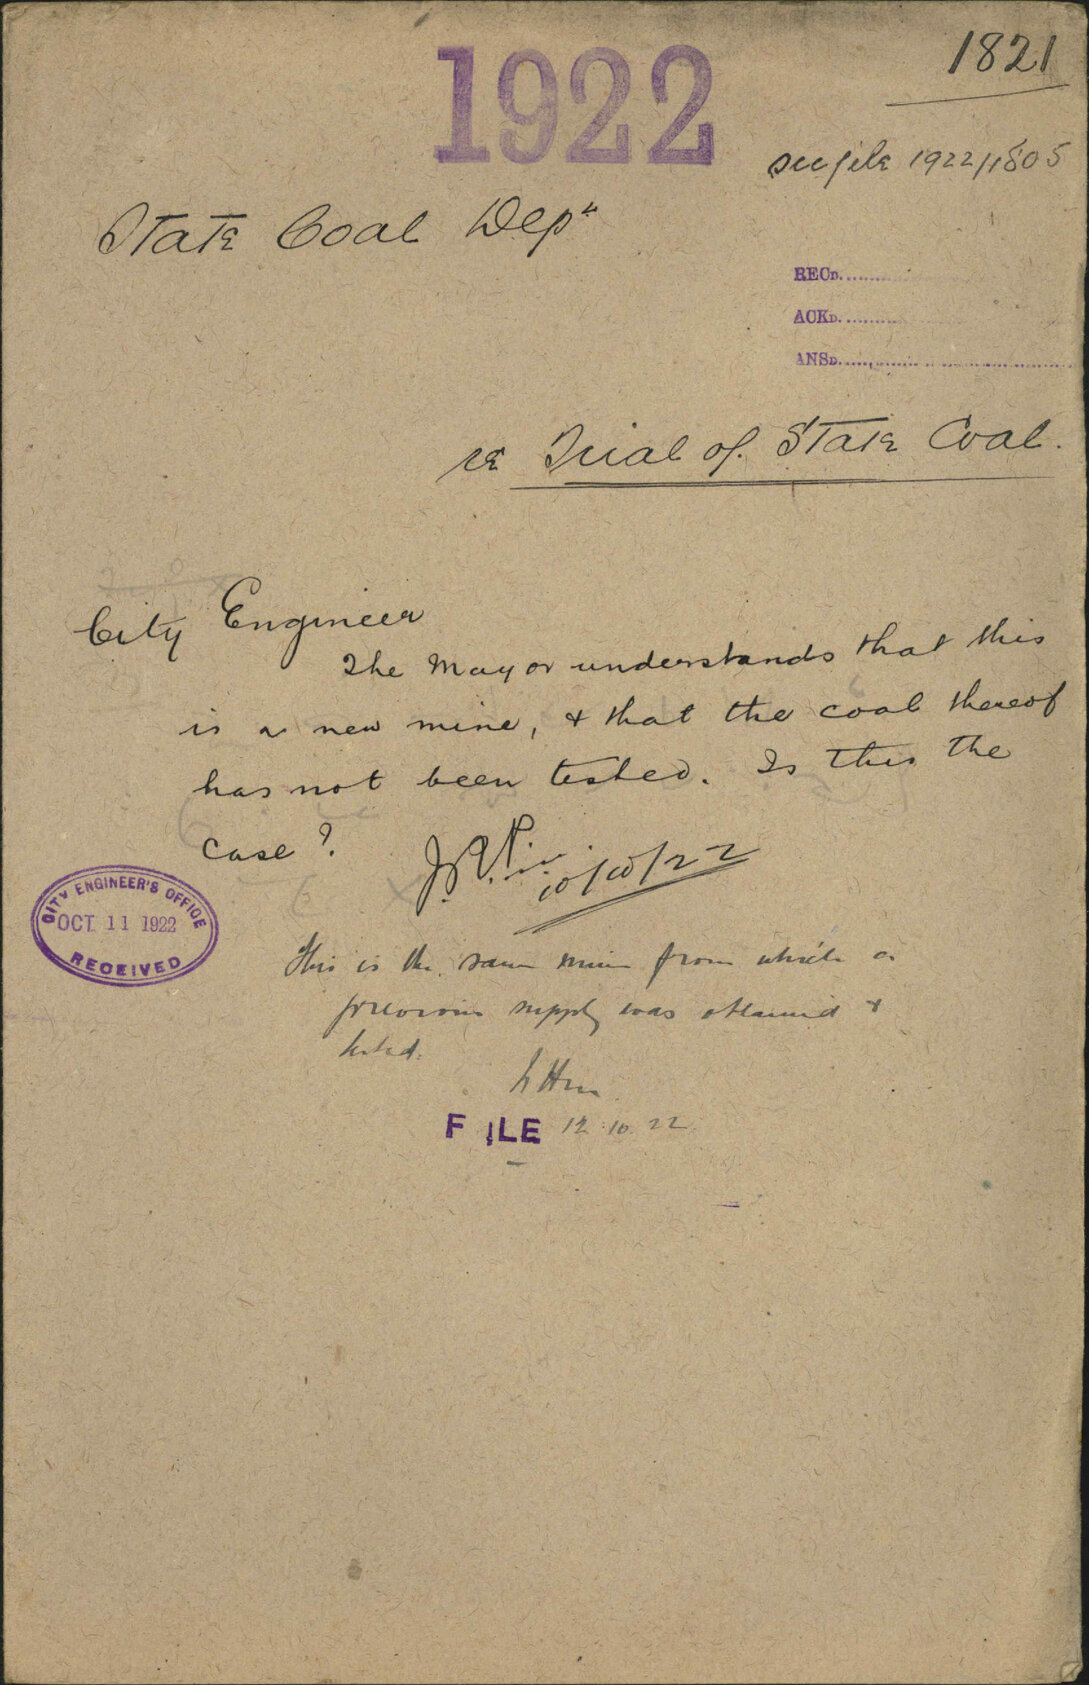 1922
1821
see file 1922/1805
State Coal Dept
RECD.
ACKD.
ANSD.
re Trial of State Coal.
City Engineer
The Mayor understands that this
is a new mine, & that the coal thereof
has not been tested. Is this the
case?
10/10/22
CITY ENGINEER'S OFFICE
OCT 11 1922
RECEIVED
This is the same mine from which a
previous supply was obtained &
tested.
FILE 12.10.22